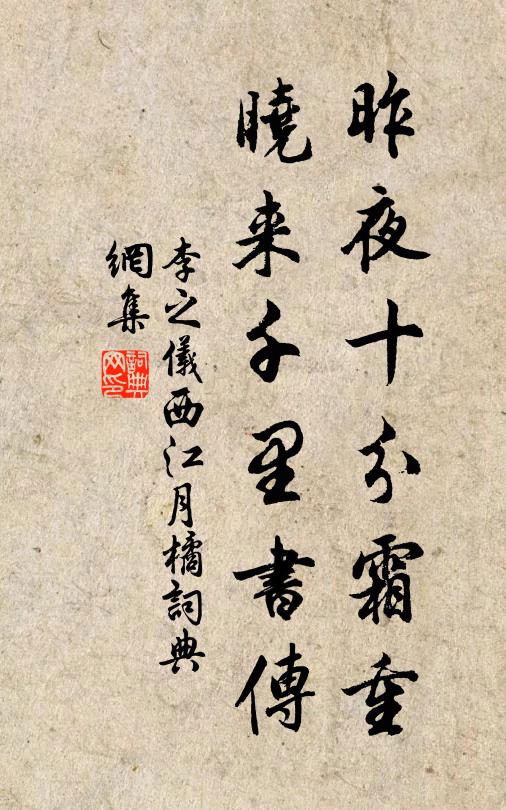 昨夜十分霜重
曉来千里書傳
李之儀西江月橘詞典
網集
詞典
网印